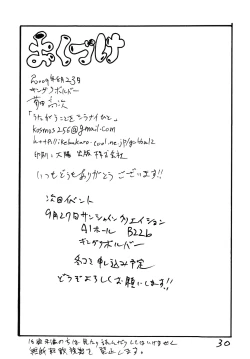 おくづけ
2009年8月23日
キングリボルバー
「うたがうことをシラナイひと」
kosmos256@gmail.com
http://ikebukuro.cool.ne.jp/gothal2
印刷：大陽出版株式会社
いつもどうもありがとうございます!!
次回イベント
9月27日サンシャインクリエイション
A1ホール B22b
キングリボルバー
冬コミ申し込み予定
どうぞよろしくお願いします!!
18歳未満の方は見たり読んだりしてはいけません
無断転載複製を禁止します。
30